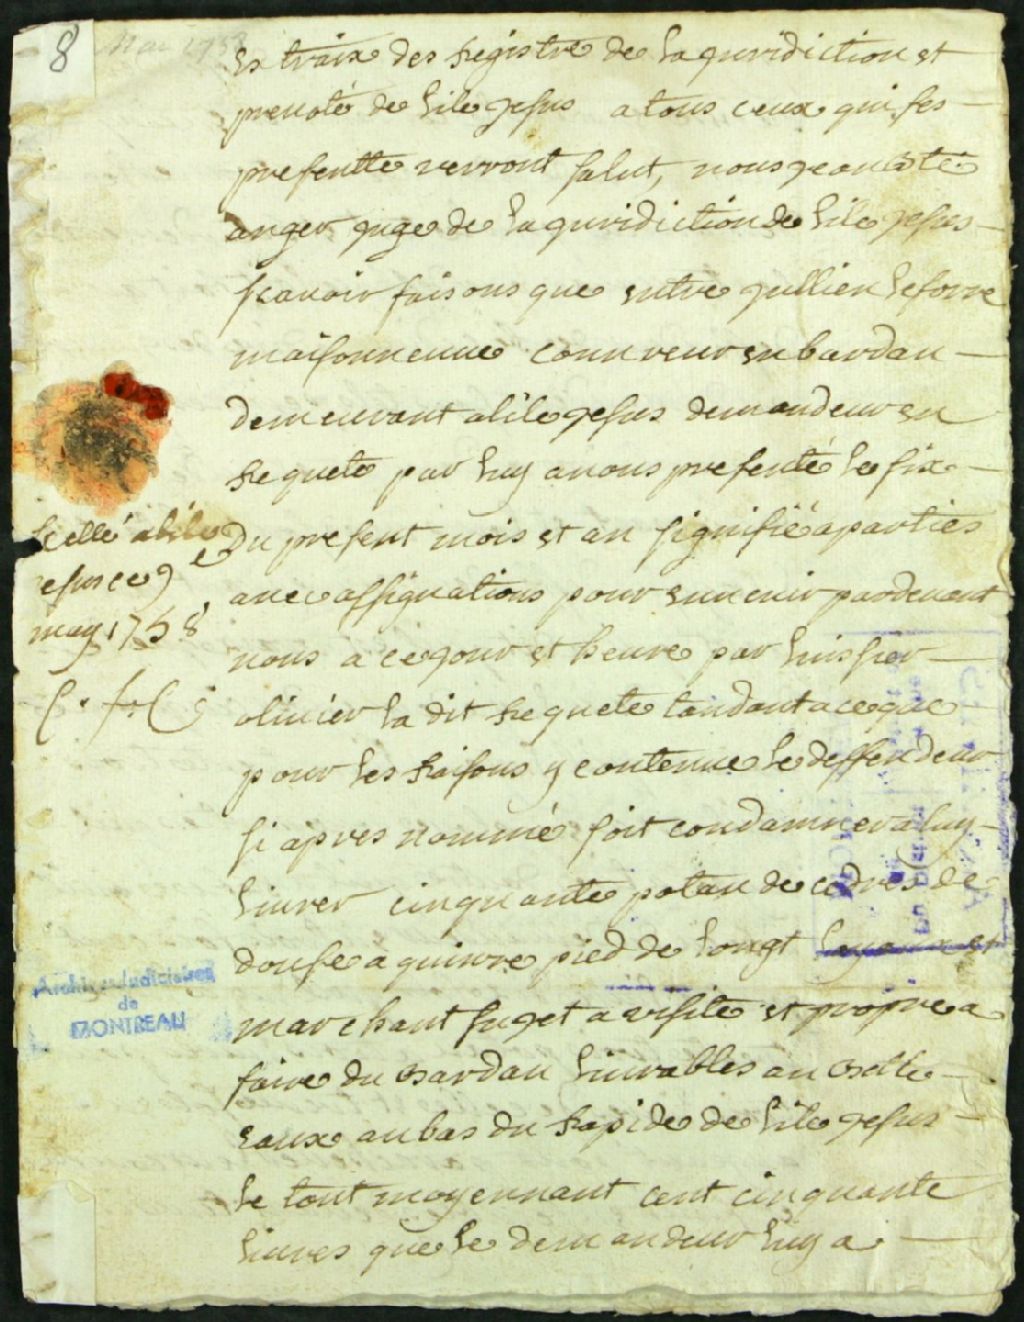 8
Mai 1758
Extraix des Registre de la juridiction et
prevoté de lile jesus a tous ceux qui ses
presentte verront salut, nous jean Bte
anger juge de la juridiction de lile jesus
scavoir faisons que entre jullien lefovre
maisonneuve couvreur en bardau
demeurant a lile jesus demandeur en
Requete par luy a nous presenté le six
Du present mois et an signifié a parties
avec assignations pour en venir pardevant
nous a ce jour et heure par luissier
olivier la dit Requete tandant a ce que
pour les Raisons y contenue le deffendeur
si apres nommé soit condamner a luy
livrer cinquante potau de cedres de
douse a quinze pied de longt
marchant suget a visite et propre a
faire du Bardau livrables au Belle
eaux au bas du Rapide de lile jesus
le tout moyennant cent cinquante
livres que le demandeur luy a
scellé a lile
jesus ce 9e
may 1758
Archives Judiciaires
de
MONTREAL